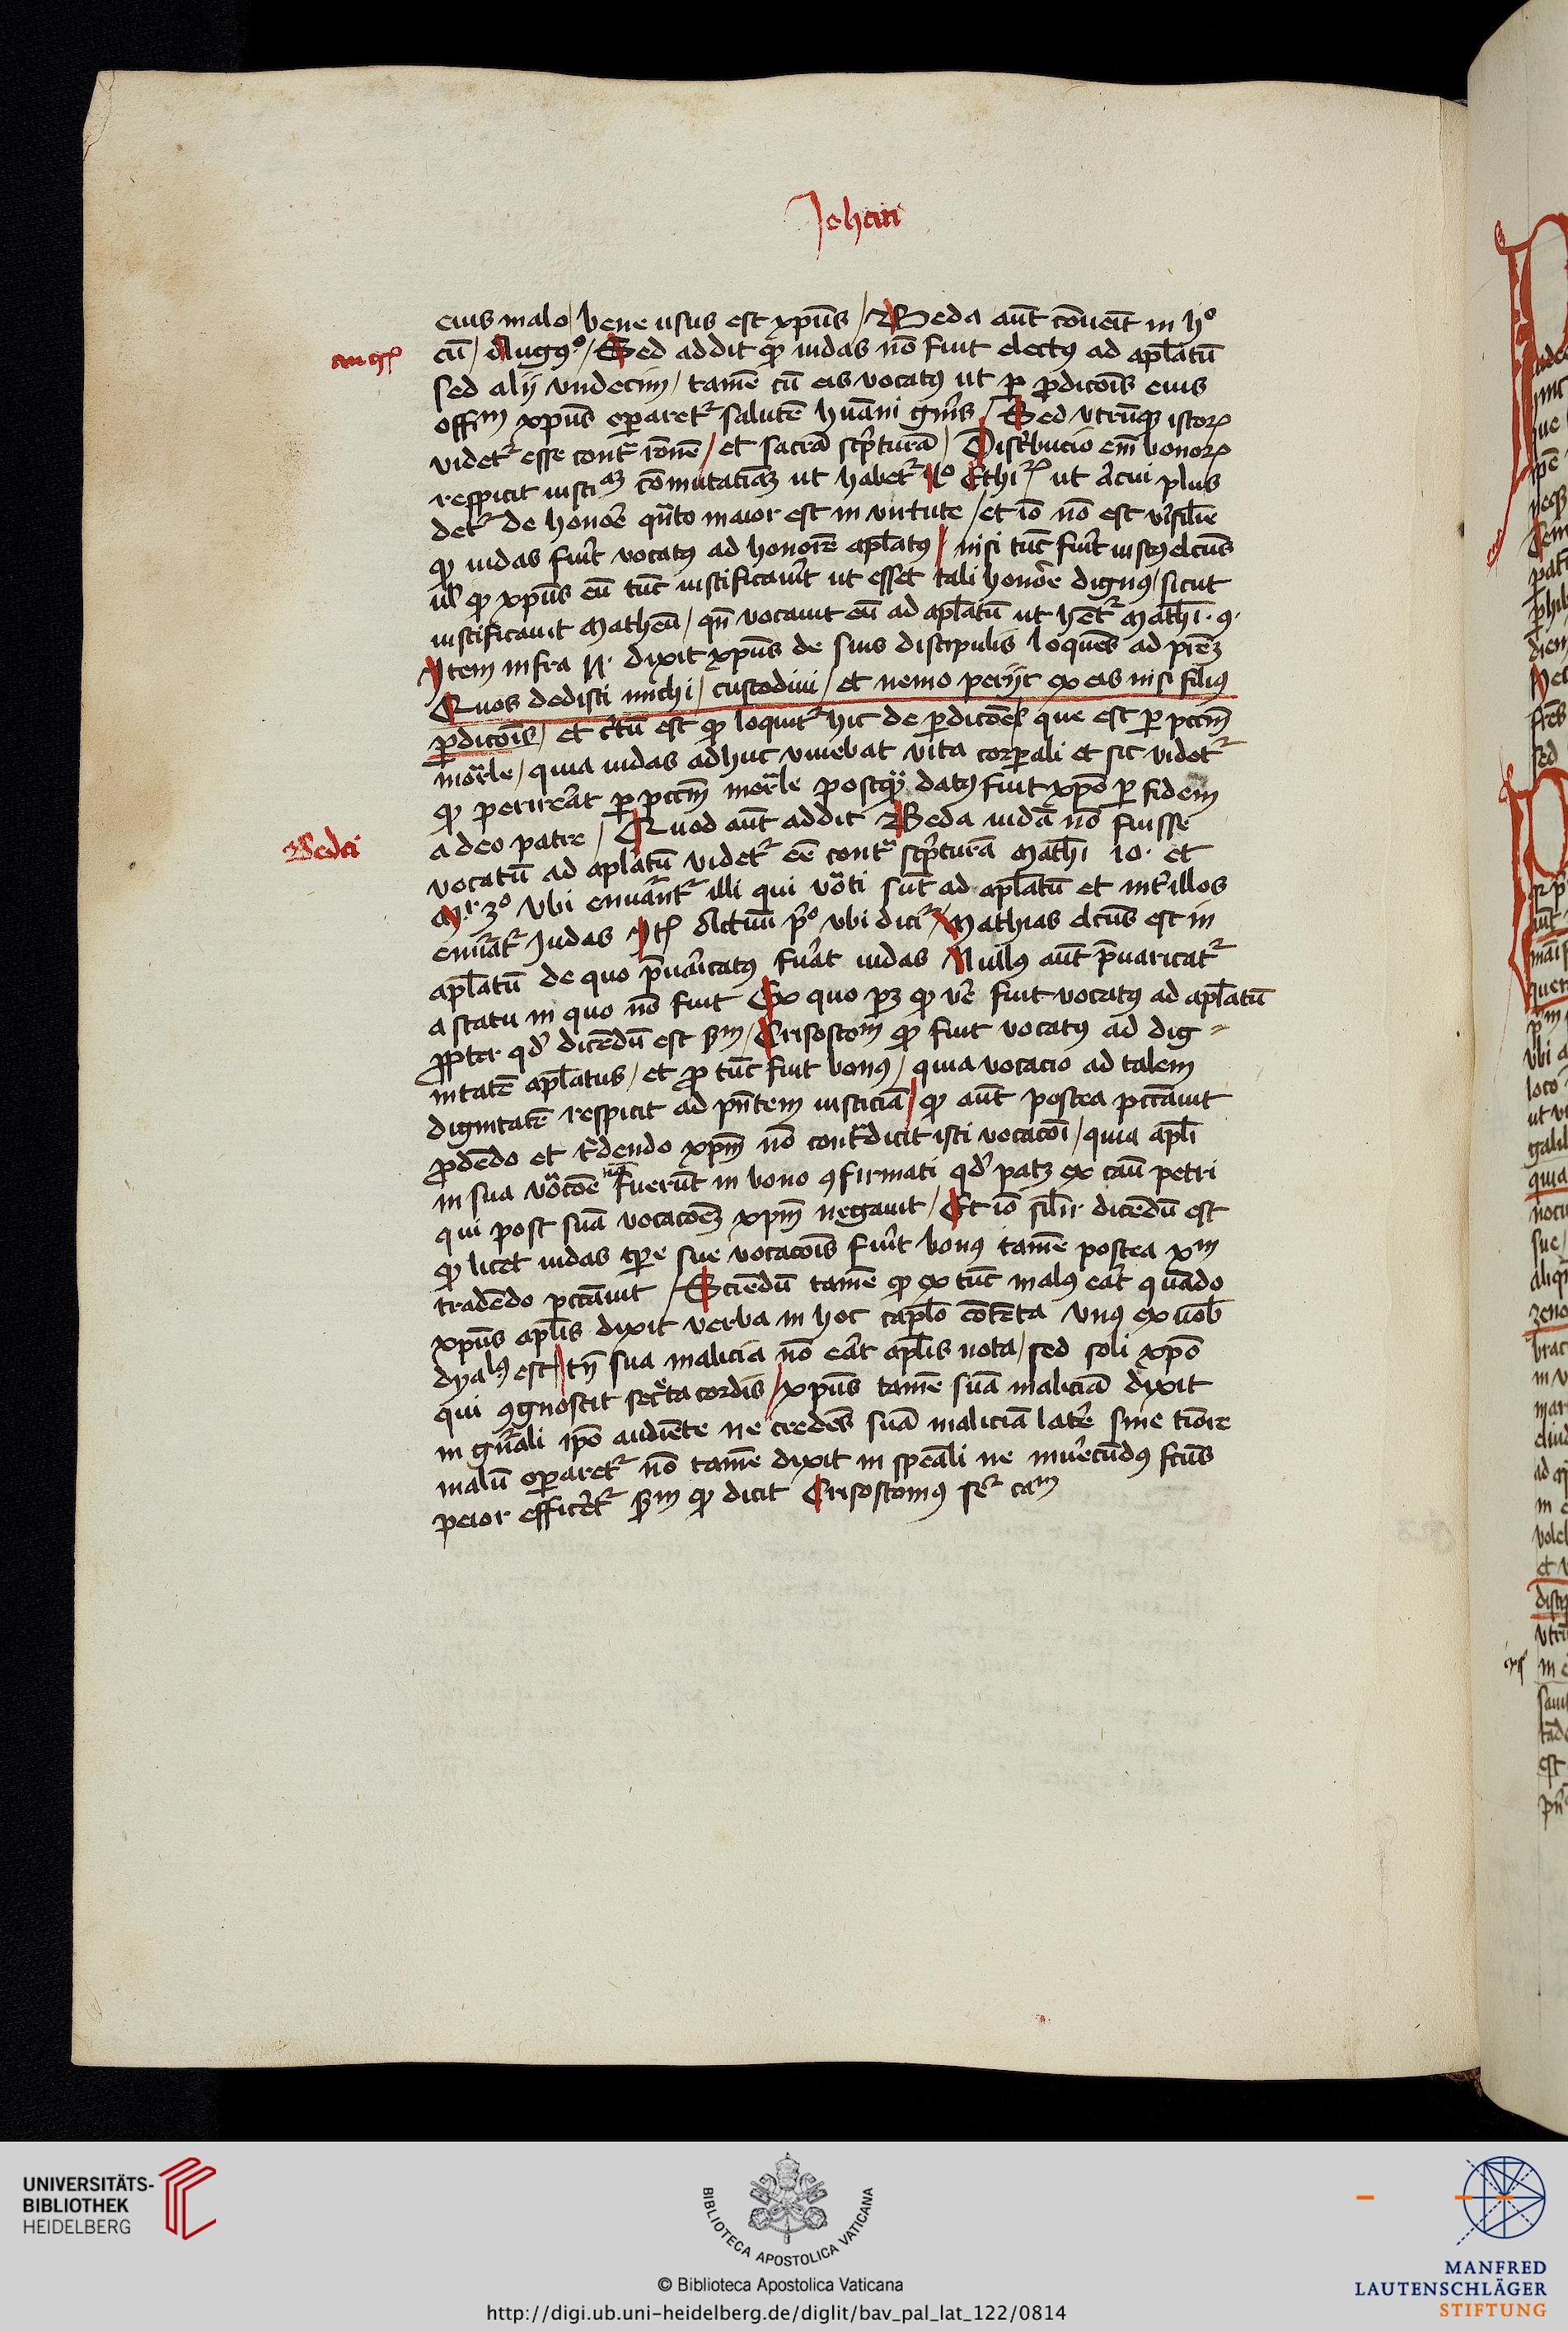 Johan
eius malo / bene usus est xpūs / Beda aūt cōuēit in hº
augꝰ
cū / Augꝰº / Sed addit ꝙ iudas nō fuit electꝰ ad apl̄atū
sed alij vndecim / tamē cū eis vocatꝰ ut ꝑ ꝓdicōis eius
offᵐ xpūs oꝑaretᷣ salutē hūani gn̄is / Sed vtrūqꝫ istoꝝ
videtᷣ esse contᷓ rōnē / et sacrā scp̄turā / Distͥbucio em̄ bonoꝝ
respicit iusti cōmutatiāꝫ ut habetᷣ Ethiꝝ ut plus
detᷣ de honoē qn̄to maior est in virtute / et iō nō est vīsilīe
ꝙ iudas fuīt vocatꝰ ad honorē apl̄atꝰ / nisi tūc fuīt iustꝰ
ul̄ ꝙ xpūs eū tūc iustificauīt ut esset tali honōe dignꝰ / sicut
iustificauit Matheū / qn̄ vocauit eū ad apl̄atū ut hētᷣ Math̄i · 9 ·
Item infra dixit xpūs de suis discipulis loquēs ad prēꝫ
Quos dedisti michi / custodiui / et nemo perijt ex eis nisi filiꝰ
ꝑdicōis / et c̄tū est ꝙ loquitᷣ hic de ꝑdicōe que est ꝑ pccm̄
morᷓle / quia iudas adhuc viuebat vita corꝑali et sic videtᷣ
ꝙ perireāt ꝑ pccm̄ morᷓle postqᷓ datꝰ fuit xpō ꝑ fidem
Beda
a deo patre / Quod aūt addit Beda iudā nō fuisse
vocatū ad apl̄atū videtᷣ eē contᷓ scp̄turā Math̄i 10 · et
Mr̄ 3º vbi enūāntᷣ illi qui uōti sūt ad apl̄atū et int̄ illos
enūātᷣ Iudas Itē Actuū p̄º vbi diciᷣ Mathias elcūs est in
apl̄atū de quo p̄uāicatꝰ fuāt iudas Nullꝰ aūt p̄uaricatᷣ
a statu in quo nō fuit Ex quo pꝫ ꝙ vē fuit vocatꝰ ad apl̄atū
ꝓpter qd̓ dicēdū est ẜm / Crisostoᵐ ꝙ fuit vocatꝰ ad dig-
nitatē apl̄atus / et ꝓ tūc fuit bonꝰ / quia vocacio ad talem
dignitatē respicit ad pn̄tem iusticiā / ꝙ aūt postea pccāuit
ꝓdēdo et tᷓdendo xpm̄ nō contᷓdicit isti vocacōi / quia apl̄i
in sua uōcōe nō fuerūt in bono ꝯfirmati qd̓ patꝫ ex cāu petri
qui post suā vocacōeꝫ xpm̄ negauit / Et iō sil̄ir dicēdū est
ꝙ licet iudas tꝑe sue vocacōis fuīt bonꝰ tamē postea xᵐ
tradēdo pccāuit / Sciēdū tamē ꝙ ex tūc malꝰ eāt quādo
xpūs apl̄is dixit verba in hoc capl̄o cōtēta vnꝰ ex uob̄
dyalꝰ est / tn̄ sua malicia nō eāt apl̄is nota / sed soli xpō
qui ꝯgnoscit secᷓta cordis / xpūs tamē suā maliciā dixit
in gn̄ali ipō audiēte ne credēs suā maliciā latē sine tiōre
malū oꝑaretᷣ nō tamē dixit in speāli ne inuēcūdꝰ fcūs
peior efficetᷣ ẜm ꝙ dicit Crisostomꝰ
UNIVERSITÄTS-
BIBLIOTHEK
HEIDELBERG
BIBLIOTECA APOSTOLICA VATICANA
© Biblioteca Apostolica Vaticana
http://digi.ub.uni-heidelberg.de/diglit/bav_pal_lat_122/0814
MANFRED
LAUTENSCHLÄGER
STIFTUNG